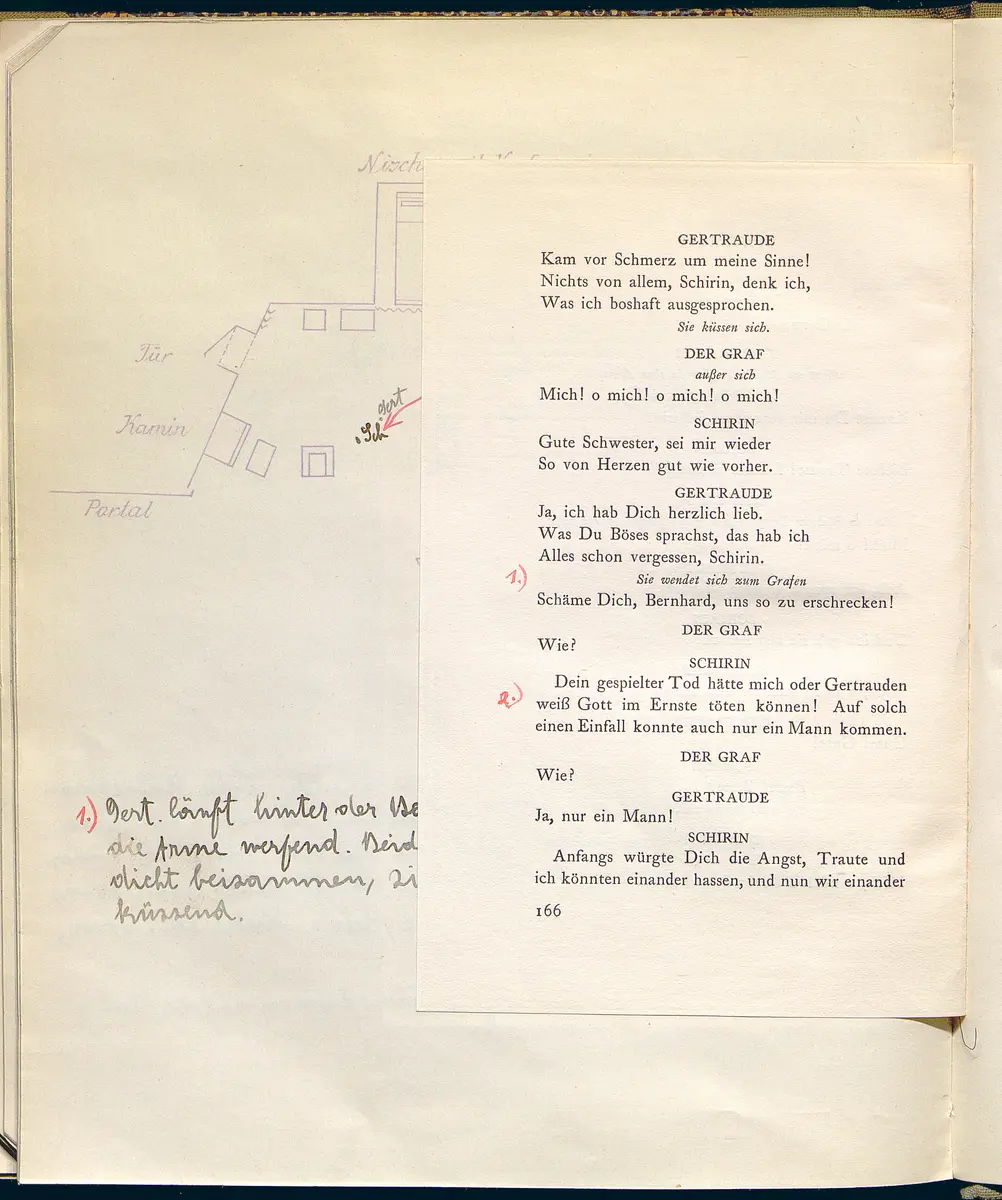 Tür
Kamin
Portal
Gert
Sch
1.) Gert. läuft hinter der
die Arme werfend.
dicht beisammen,
küssend.
GERTRAUDE
Kam vor Schmerz um meine Sinne!
Nichts von allem, Schirin, denk ich,
Was ich boshaft ausgesprochen.
Sie küssen sich.
DER GRAF
außer sich
Mich! o mich! o mich! o mich!
SCHIRIN
Gute Schwester, sei mir wieder
So von Herzen gut wie vorher.
GERTRAUDE
Ja, ich hab Dich herzlich lieb.
Was Du Böses sprachst, das hab ich
Alles schon vergessen, Schirin.
1.)
Sie wendet sich zum Grafen
Schäme Dich, Bernhard, uns so zu erschrecken!
DER GRAF
Wie?
SCHIRIN
Dein gespielter Tod hätte mich oder Gertrauden
2.) weiß Gott im Ernste töten können! Auf solch
einen Einfall konnte auch nur ein Mann kommen.
DER GRAF
Wie?
GERTRAUDE
Ja, nur ein Mann!
SCHIRIN
Anfangs würgte Dich die Angst, Traute und
ich könnten einander hassen, und nun wir einander
166